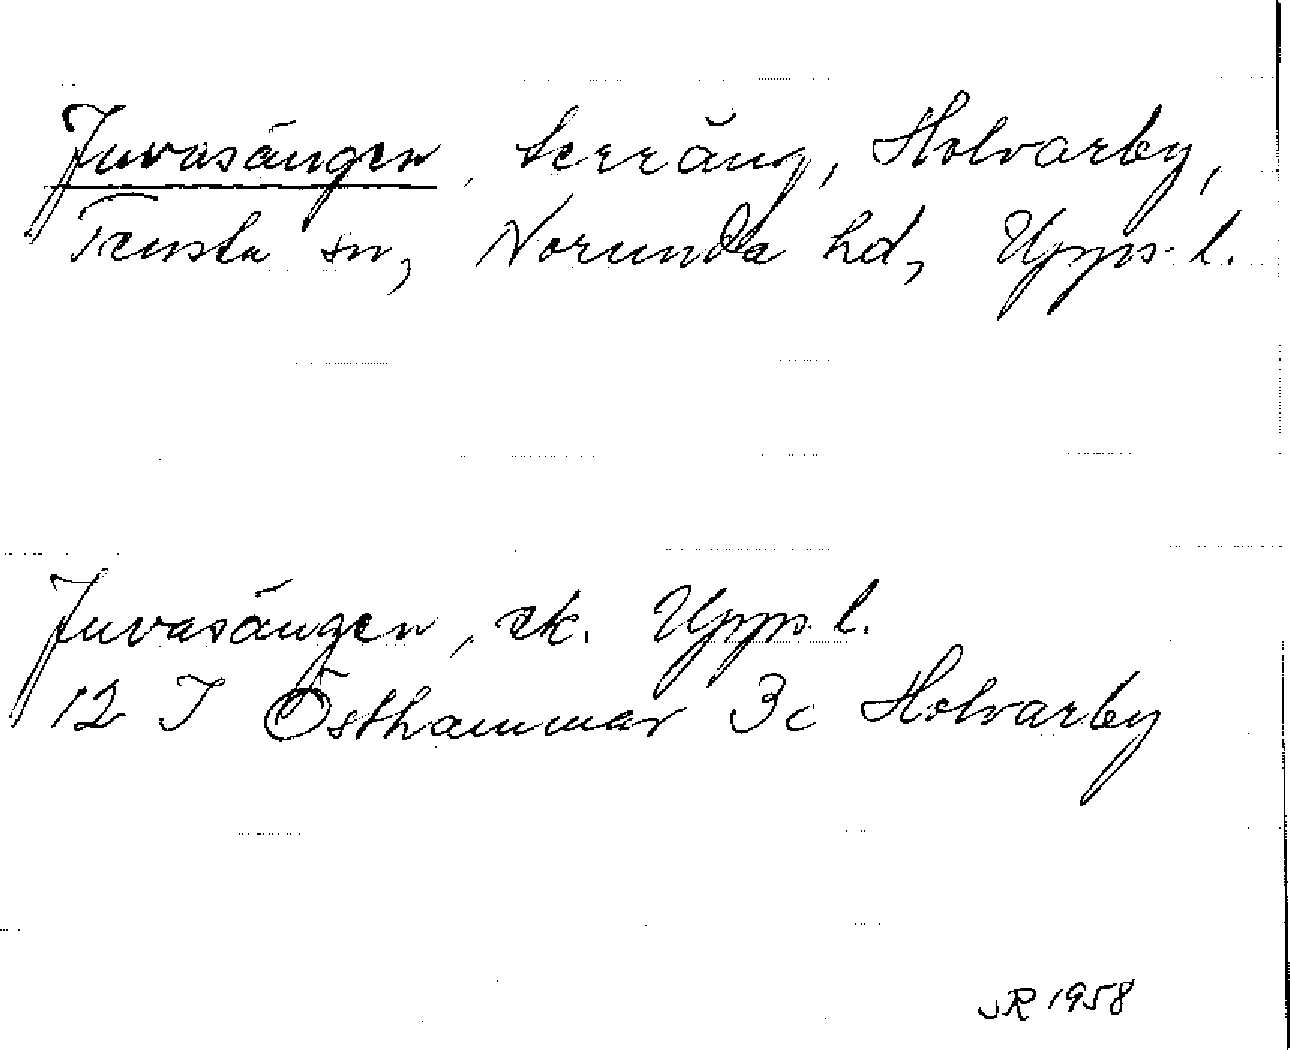 Juvasängen, terräng, Holvarby,
Tensta sn, Norunda hd, Upps. l.
Juvasängen, ek. Upps. l.
12 I Östhammar 3c Holvarby
JR 1958